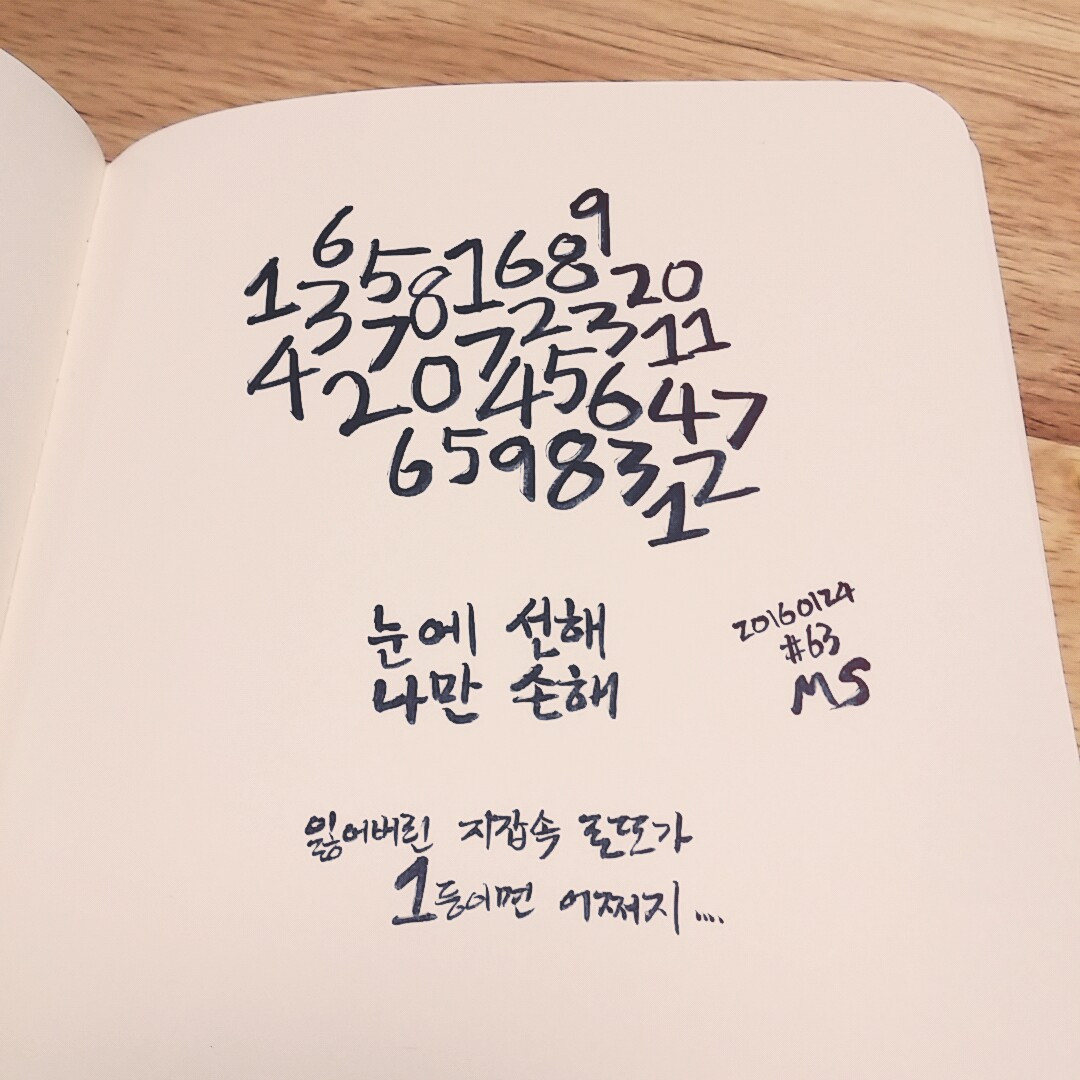 6 9
1 3 5 8 1 6 8 20
7 7 2 3 11
4 2 0 4 5 6 4 7
6 5 9 8 3 2
1
눈에 선해
나만 손해
20160124
#63
MS
잃어버린 지갑속 로또가
1등이면 어쩌지....